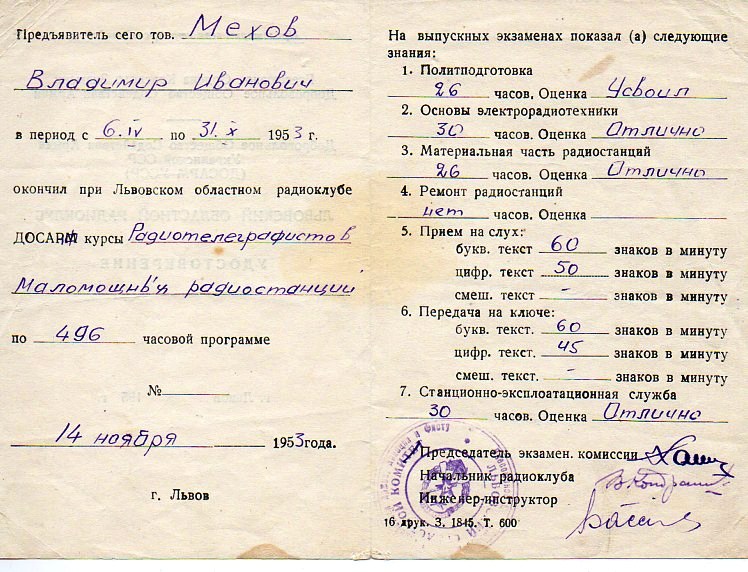 Предъявитель сего тов. Мехов
Владимир Иванович
в период с 6.IV по 31.X 1953 г.
окончил при Львовском областном радиоклубе
ДОСААФ курсы Радиотелеграфистов
Маломощных радиостанции
по 496 часовой программе
№
14 ноября 1953 года.
г. Львов
На выпускных экзаменах показал (а) следующие
знания:
1. Политподготовка
26 часов. Оценка Усвоил
2. Основы электрорадиотехники
30 часов. Оценка Отлично
3. Материальная часть радиостанций
26 часов. Оценка Отлично
4. Ремонт радиостанций
нет часов. Оценка
5. Прием на слух:
букв. текст 60 знаков в минуту
цифр. текст 50 знаков в минуту
смеш. текст - знаков в минуту
6. Передача на ключе:
букв. текст. 60 знаков в минуту
цифр. текст. 45 знаков в минуту
смеш. текст. - знаков в минуту
7. Станционно-эксплоатационная служба
30 часов. Оценка Отлично
Председатель экзамен. комиссии
Начальник радиоклуба
Инженер-инструктор
16 друк. З. 1845. Т. 600